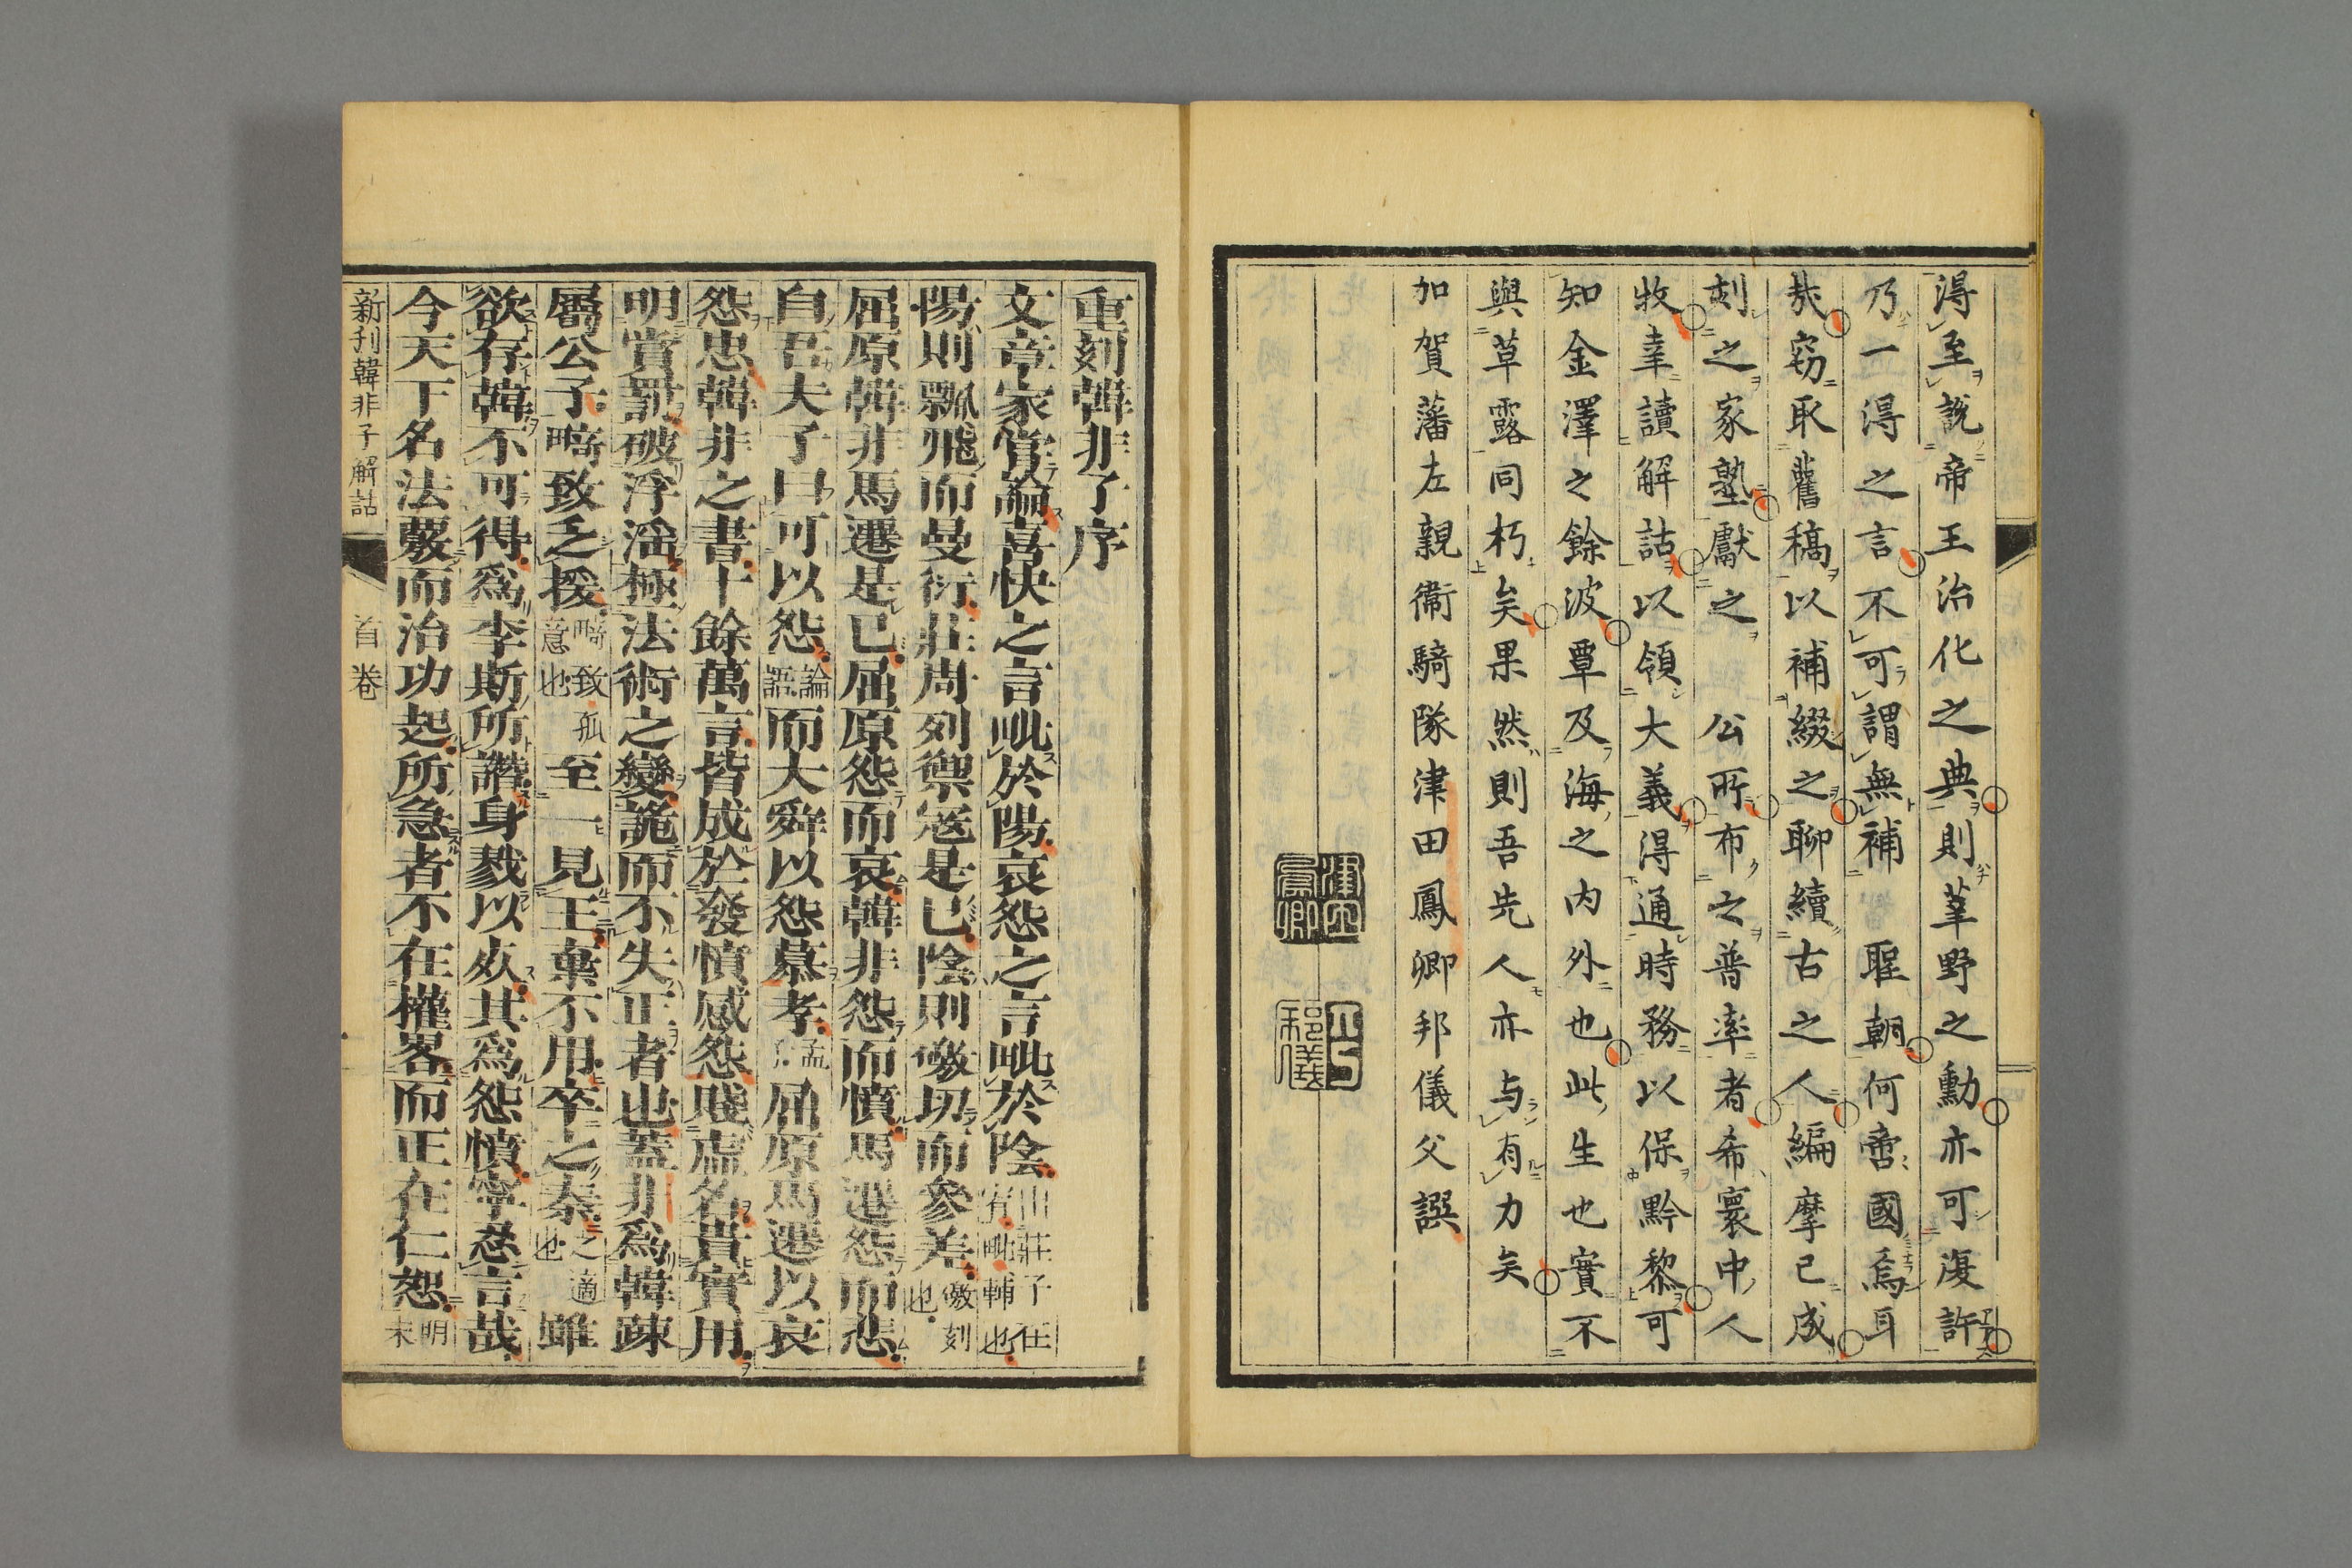 得至說帝王治化之典則莘野之勳亦可復許
乃一得之言不可謂無補 聖朝何啻國爲耳
哉竊取舊稿以補綴之聊續古之人編摩已成
刻之家塾獻之 公所布之普率者希寰中人
牧幸讀解詁以領大義得通時務以保黔黎可
知金澤之餘波覃及海之内外也此生也實不
與草露同朽矣果然則吾先人亦与有力矣
加賀藩左親衞騎隊津田鳳卿邦儀父譔
鳳卿
邦儀
重刻韓非子序
文章家嘗論喜快之言毗於陽哀怨之言毗於陰出莊子在宥毗輔也
陽則飄飛而曼衍莊周列禦寇是已陰則礉切而參差礉刻也
屈原韓非馬遷是已屈原怨而哀韓非怨而憤馬遷怨而悲
自吾夫子曰可以怨論語而大舜以怨慕孝孟子屈原馬遷以哀
怨忠韓非之書十餘萬言皆成於發憤感怨賤虛名貴實用
明賞罰破浮淫極法術之變詭而不失正者也蓋非爲韓疎
屬公子畸致乏援畸致孤意也至一見王棄不用卒之秦之適也雖
欲存韓不可得爲李斯所譖身戮以死其爲怨憤寧忍言哉
今天下名法嚴而治功起所急者不在權畧而正在仁恕明末
新刊韓非子解詁 首卷